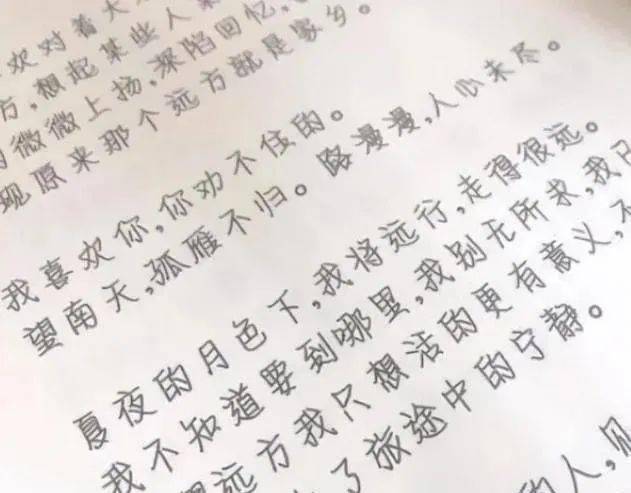 欢对着大
方,想起某些人
微微上扬,深陷回忆,
现原来那个远方就是家乡。
我喜欢你,你劝不住的。
望南天,孤雁不归。路漫漫,人心未尽。
夏夜的月色下,我将远行,走得很远。
我不知道要到哪里,我别无所求,我
远方我只想活的更有意义,不
了旅途中的宁静。
的人,见